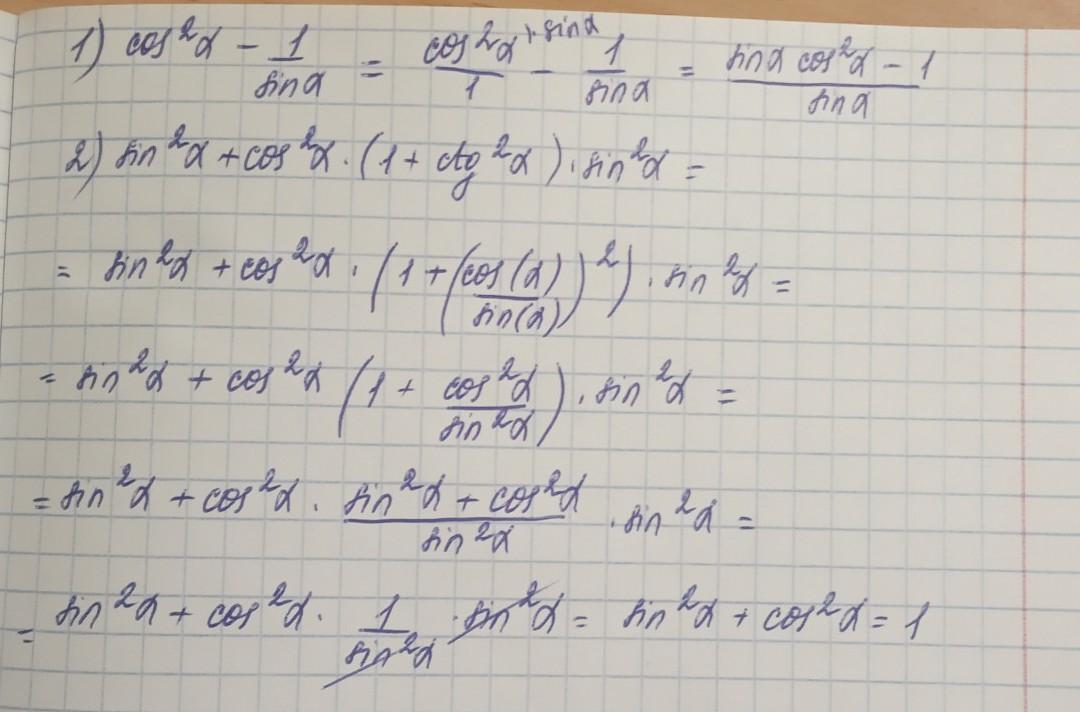 1) cos²α − 1/sinα = cos²α^{\sinα}/1 − 1/sinα = (sinα cos²α − 1)/sinα
2) sin²α + cos²α · (1 + ctg²α) · sin²α =
= sin²α + cos²α · (1 + (cos(α)/sin(α))²) · sin²α =
= sin²α + cos²α (1 + cos²α/sin²α) · sin²α =
= sin²α + cos²α · (sin²α + cos²α)/sin²α · sin²α =
= sin²α + cos²α · 1/sin²α · sin²α = sin²α + cos²α = 1